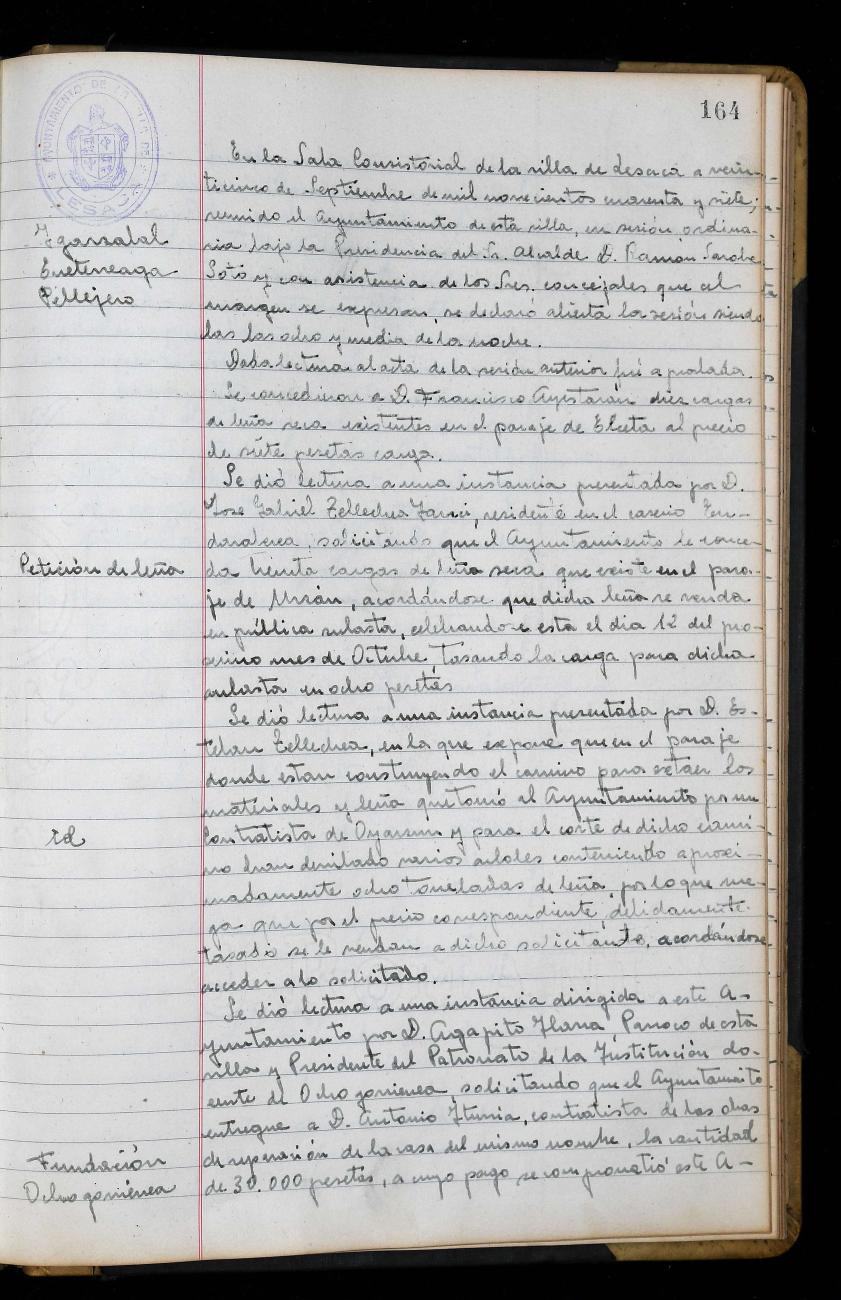 164
AYUNTAMIENTO DE LA VILLA DE LESACA
En la Sala Consistorial de la villa de Lesaca a vein-
ticinco de Septiembre de mil novecientos cuarenta y siete;
reunido el Ayuntamiento de esta villa, en sesión ordina-
ria bajo la Presidencia del Sr. Alcalde D. Ramón Sarobe
Soto y con asistencia de los Sres. concejales que al
margen se expresan, se declaró abierta la sesión siendo
las las ocho y media de la noche.
Igarzabal
Pellejero
Dada lectura al acta de la sesión anterior fué aprobada.
Se concedieron a D. Francisco Ayestarán diez cargas
de leña seca existentes en el paraje de Elceta al precio
de siete pesetas carga.
Se dió lectura a una instancia presentada por D.
Jose Gabriel Tellechea, residente en el caserio
solicitando que el Ayuntamiento le conce-
Petición de leña
da treinta cargas de leña seca que existe en el para-
je de Unzán, acordándose que dicha leña se venda
en pública subasta, celebrandose esta el dia 12 del pro-
ximo mes de Octubre, tasando la carga para dicha
subasta en ocho pesetas
Se dió lectura a una instancia presentada por D. Es-
teban Tellechea, en la que expone que en el paraje
donde estan construyendo el camino para extraer los
materiales y leña que tomó al Ayuntamiento por un
Contratista de Oyarzun y para el corte de dicho cami-
id
no han derribado varios arboles conteniendo aproxi-
madamente ocho toneladas de leña, por lo que rue-
ga que por el precio correspondiente, debidamente
tasado se le vendan a dicho solicitante, acordándose
acceder a lo solicitado.
Se dió lectura a una instancia dirigida a este A-
yuntamiento por D. Agapito Illana Parroco de esta
villa y Presidente del Patronato de la Institución do-
cente de Ochogonienea, solicitando que el Ayuntamiento
entregue a D. Antonio Iturria, contratista de las obras
de reparación de la casa del mismo nombre, la cantidad
Fundación
Ochogonienea
de 30.000 pesetas, a cuyo pago se comprometió este A-